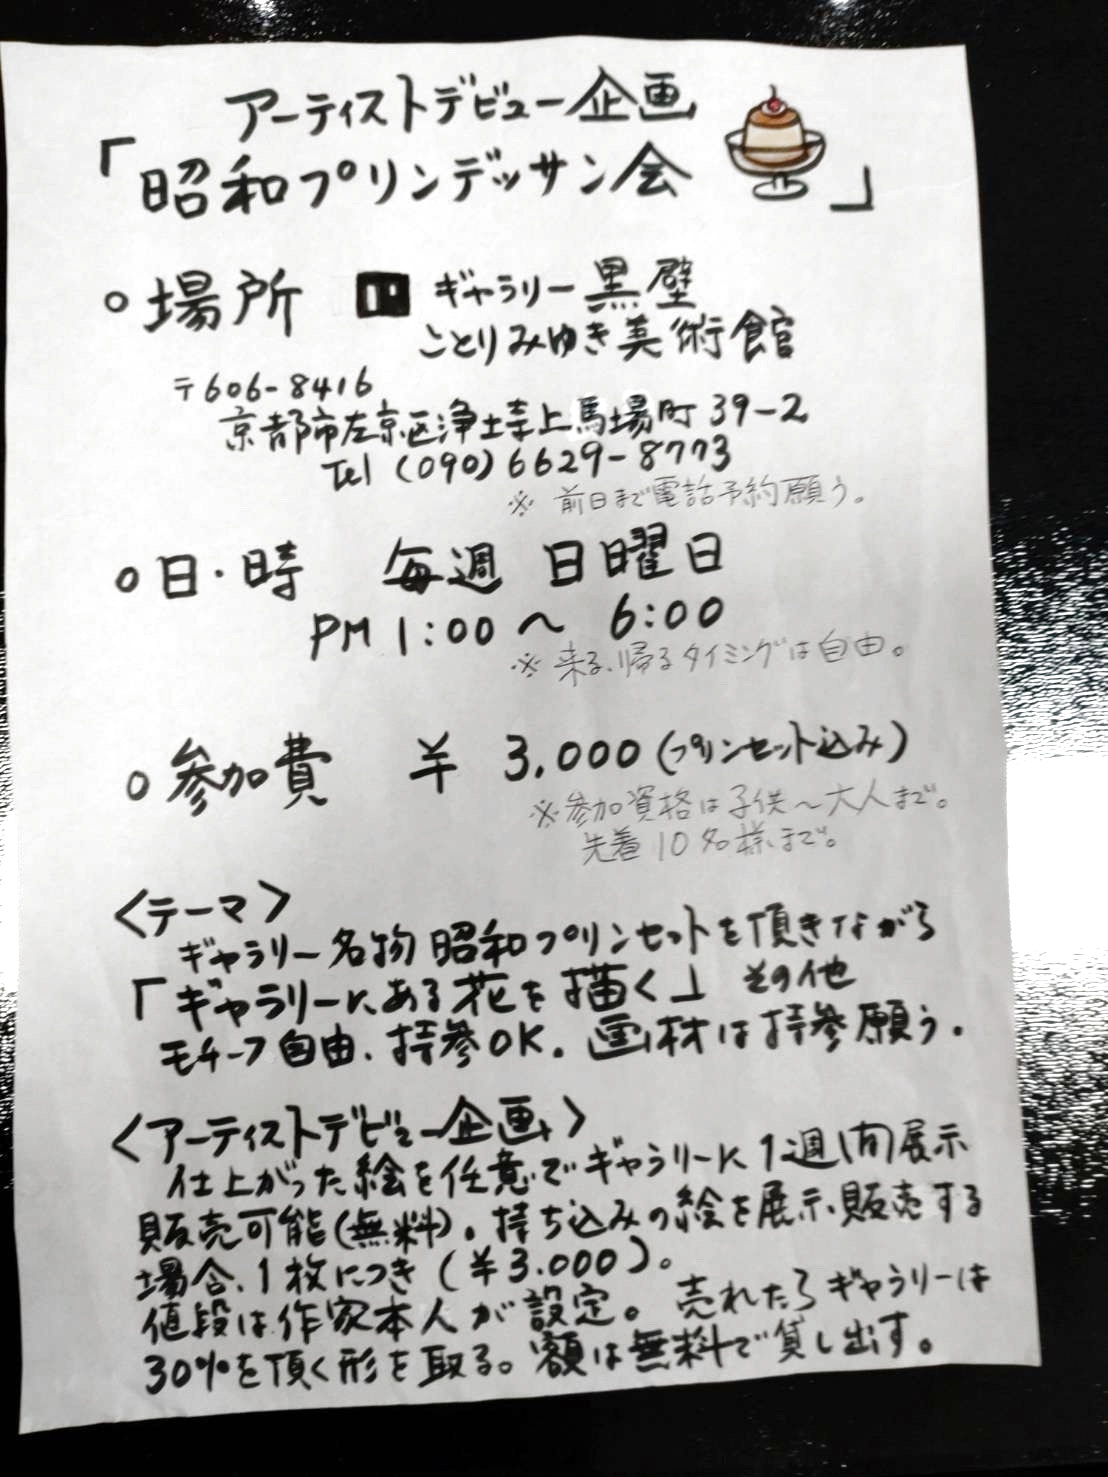 アーティストデビュー企画
「昭和プリンデッサン会 」
○場所 ギャラリー黒壁
ことりみゆき美術館
〒606-8416
京都市左京区浄土寺上馬場町39-2
Tel (090)6629-8773
※ 前日まで電話予約願う。
○日・時 毎週 日曜日
PM 1:00 〜 6:00
※ 来る、帰るタイミングは自由。
○参加費 ¥ 3,000(プリンセット込み)
※参加資格は子供〜大人まで。
先着10名様まで。
<テーマ>
ギャラリー名物昭和プリンセットを頂きながら
「ギャラリーにある花を描く」その他
モチーフ自由、持参OK。画材は持参願う。
<アーティストデビュー企画>
仕上がった絵を任意でギャラリーに1週間展示
販売可能(無料)。持ち込みの絵を展示、販売する
場合、1枚につき(¥3.000)。
値段は作家本人が設定。売れたらギャラリーは
30%を頂く形を取る。額は無料で貸し出す。